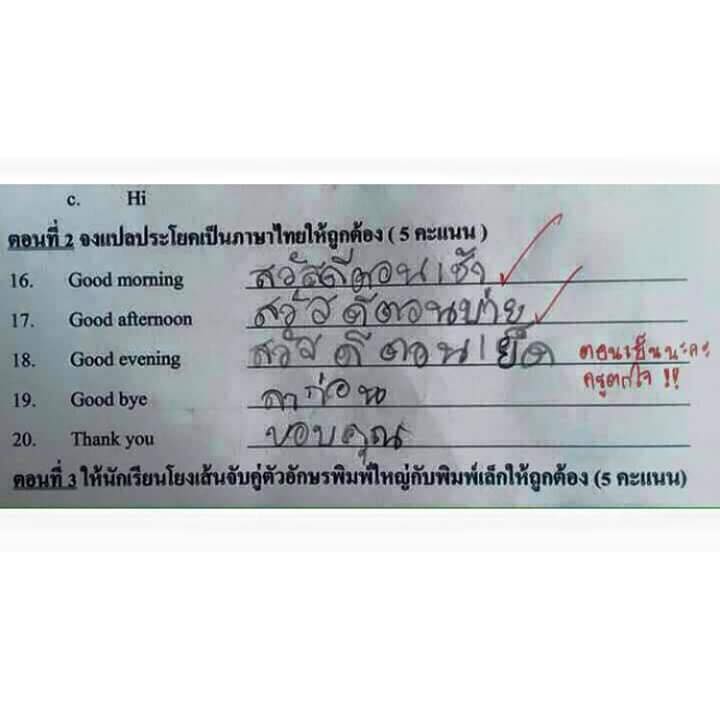 c. Hi
ตอนที่ 2 จงแปลประโยคเป็นภาษาไทยให้ถูกต้อง ( 5 คะแนน )
16. Good morning สวัสดีตอนเช้า
17. Good afternoon สวัสดีตอนบ่าย
18. Good evening สวัสดีตอนเย็ด ตอนเย็นนะคะ
ครูตกใจ !!
19. Good bye ลาก่อน
20. Thank you ขอบคุณ
ตอนที่ 3 ให้นักเรียนโยงเส้นจับคู่ตัวอักษรพิมพ์ใหญ่กับพิมพ์เล็กให้ถูกต้อง (5 คะแนน)